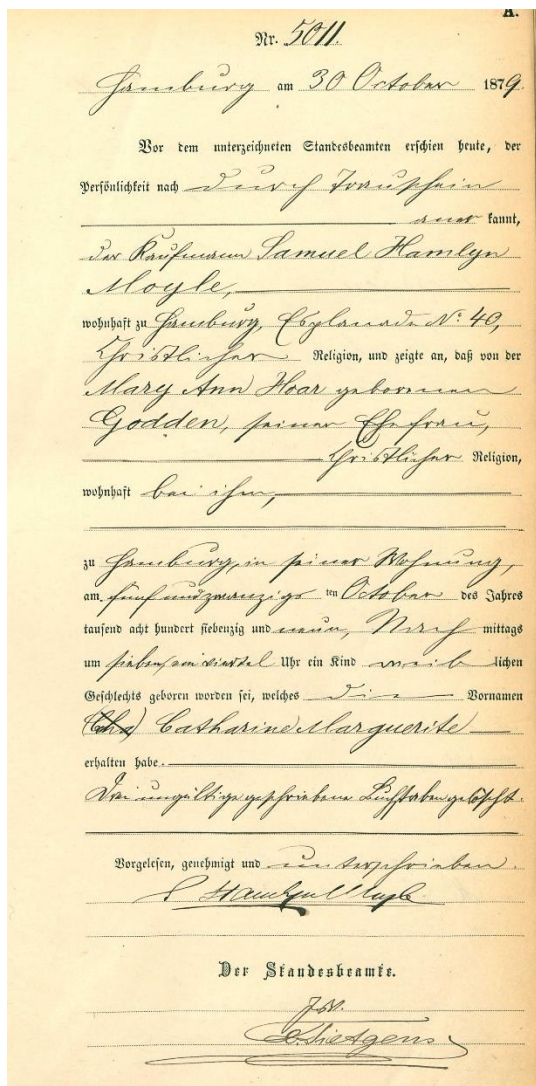 A.
Nr. 5011.
Hamburg am 30 October 1879.
Vor dem unterzeichneten Standesbeamten erschien heute, der
Persönlichkeit nach durch Trauschein
aner kannt,
der Kaufmann Samuel Hamlyn
Moyle,
wohnhaft zu Hamburg, Esplanade No: 40,
christlicher Religion, und zeigte an, daß von der
Mary Ann Hoar geborenen
Godden, seiner Ehefrau,
christlicher Religion,
wohnhaft bei ihm,
zu Hamburg, in seiner Wohnung,
am fünfundzwanzigs ten October des Jahres
tausend acht hundert siebenzig und neun, Nach mittags
um sieben, ein viertel Uhr ein Kind weib lichen
Geschlechts geboren worden sei, welches die Vornamen
(Cha) Catharine Marguerite
erhalten habe.
Drei ungültige geschriebene Buchstaben gelöscht.
Vorgelesen, genehmigt und unterschrieben.
S Hamlyn Moyle
Der Standesbeamte.